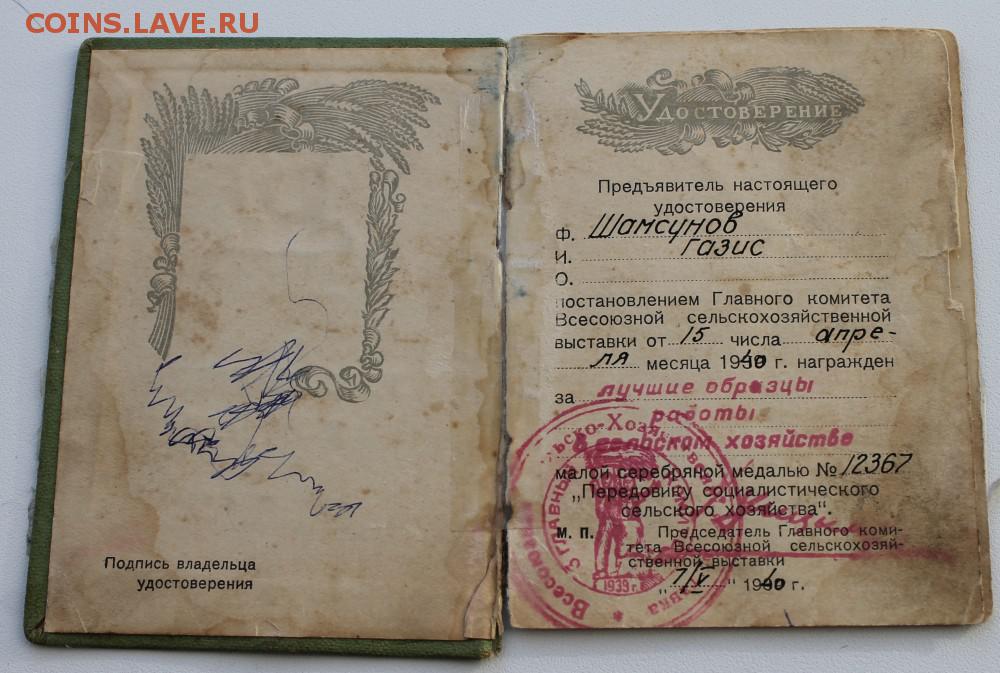 COINS.LAVE.RU
Подпись владельца
удостоверения
Удостоверение
Предъявитель настоящего
удостоверения
Ф. Шамсунов
И. Газис
О.
постановлением Главного комитета
Всесоюзной сельскохозяйственной
выставки от 15 числа апре-
ля месяца 1940 г. награжден
за лучшие образцы
работы
в сельском хозяйстве
малой серебряной медалью № 12367
„Передовику социалистического
сельского хозяйства“.
М. П. Председатель Главного коми-
тета Всесоюзной сельскохозяй-
ственной выставки
„7/V“ 1940 г.
Всесоюзная Сельско-Хозяйственная Выставка
Главный
1939 г.